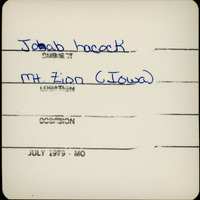 Johab hacock
SUBJECT
Mt. Zion (Iowa)
LOCATION
OCCASION
JULY 1979 - MO